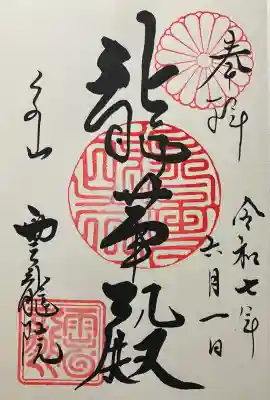 奉拝
令和七年
六月一日
龍華殿
泉山
雲龍院